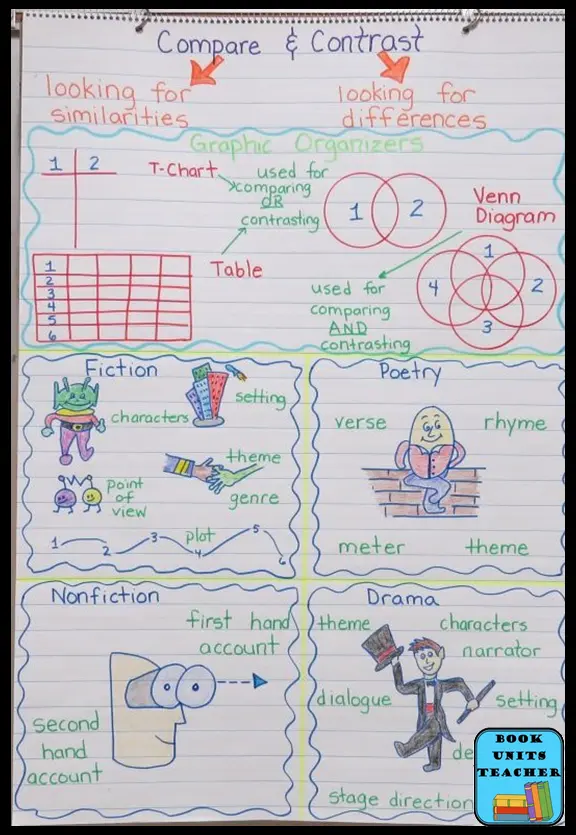 Compare & Contrast
looking for
similarities
looking for
differences
Graphic Organizers
1 2
T-Chart
used for
comparing
OR
contrasting
1 2
Venn
Diagram
1
2
3
4
5
6
Table
used for
comparing
AND
contrasting
1
4 2
3
Fiction
characters
setting
theme
genre
point
of
view
plot
1 2 3 4 5 6
Poetry
verse rhyme
meter theme
Nonfiction
first hand
account
second
hand
account
Drama
theme characters
narrator
dialogue setting
stage direction
BOOK
UNITS
TEACHER